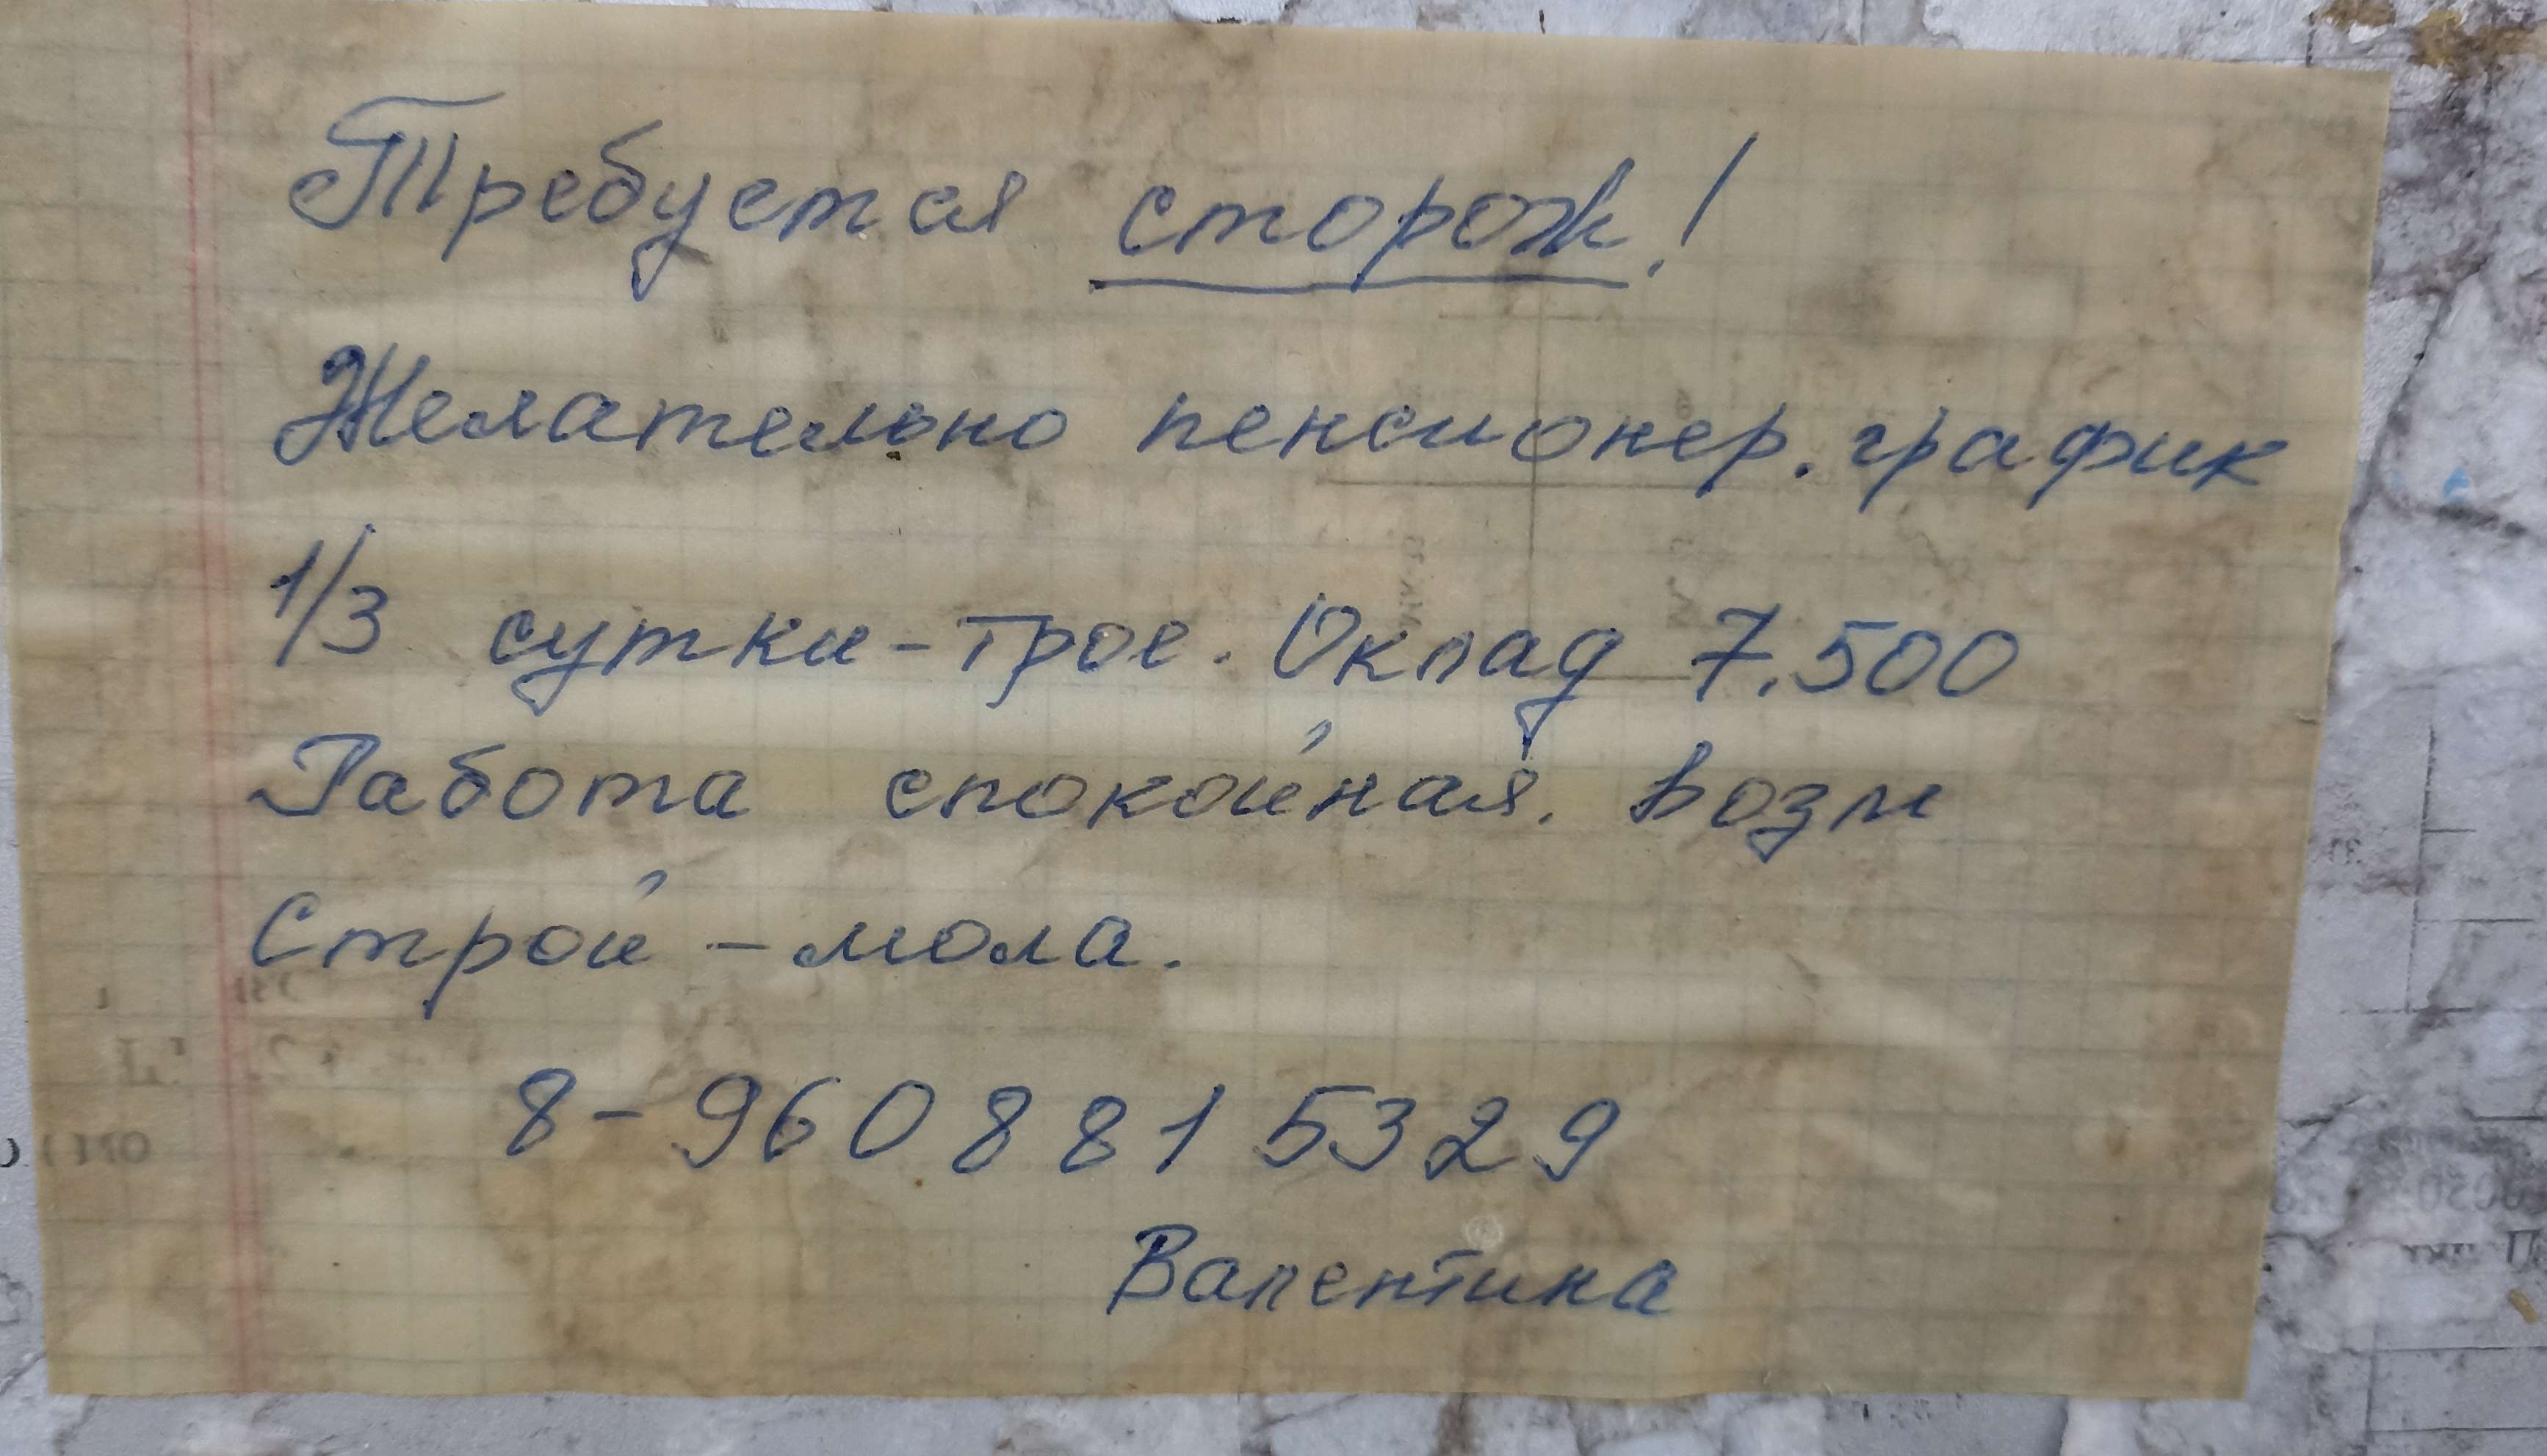 Требуется сторож!
Желательно пенсионер. график
1/3 сутки-трое. Оклад 7.500
Работа спокойная. Возл
Строй - мола.
8-960 881 5329
Валентина